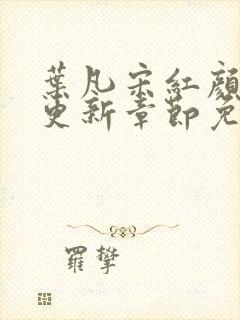 葉凡宋紅顏
更新章節免
羅攀